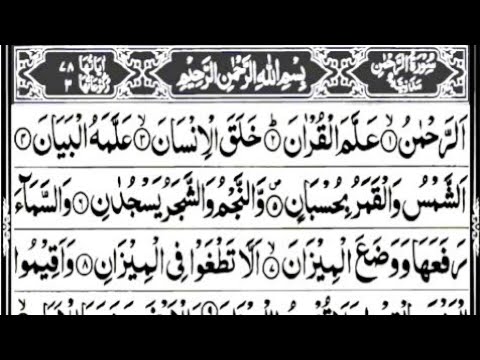 سُوْرَةُ الرَّحْمٰنِ مَدَنِيَّةٌ
بِسْمِ اللّٰهِ الرَّحْمٰنِ الرَّحِيْمِ
اٰيَاتُهَا ٧٨
رُكُوْعَاتُهَا ٣
اَلرَّحْمٰنُ ۝١ عَلَّمَ الْقُرْاٰنَ ۝٢ خَلَقَ الْاِنْسَانَ ۝٣ عَلَّمَهُ الْبَيَانَ ۝٤
اَلشَّمْسُ وَالْقَمَرُ بِحُسْبَانٍ ۝٥ وَّالنَّجْمُ وَالشَّجَرُ يَسْجُدٰنِ ۝٦ وَالسَّمَآءَ
رَفَعَهَا وَوَضَعَ الْمِيْزَانَ ۝٧ اَلَّا تَطْغَوْا فِى الْمِيْزَانِ ۝٨ وَاَقِيْمُوا